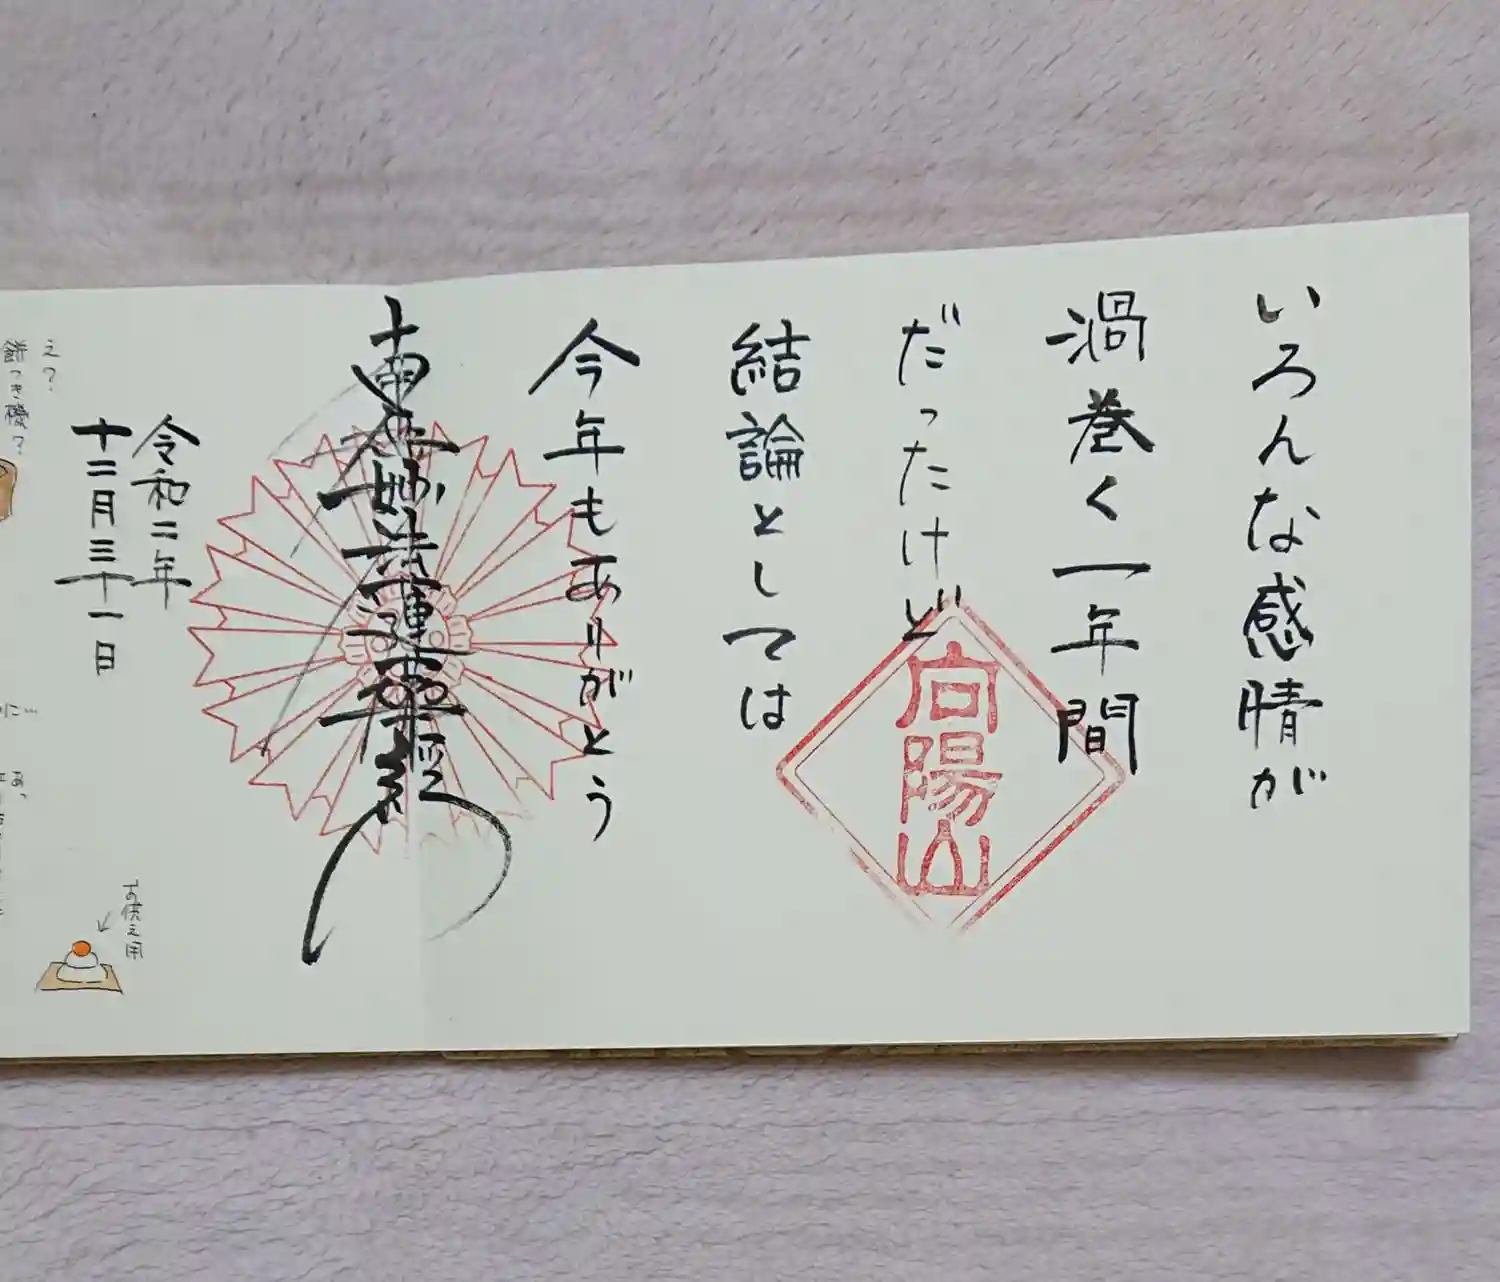 いろんな感情が
渦巻く一年間
だったけど
結論としては
今年もありがとう
向陽山
南無妙法蓮華経
令和二年
十二月三十一日
お供え用
え?
餅つき機?